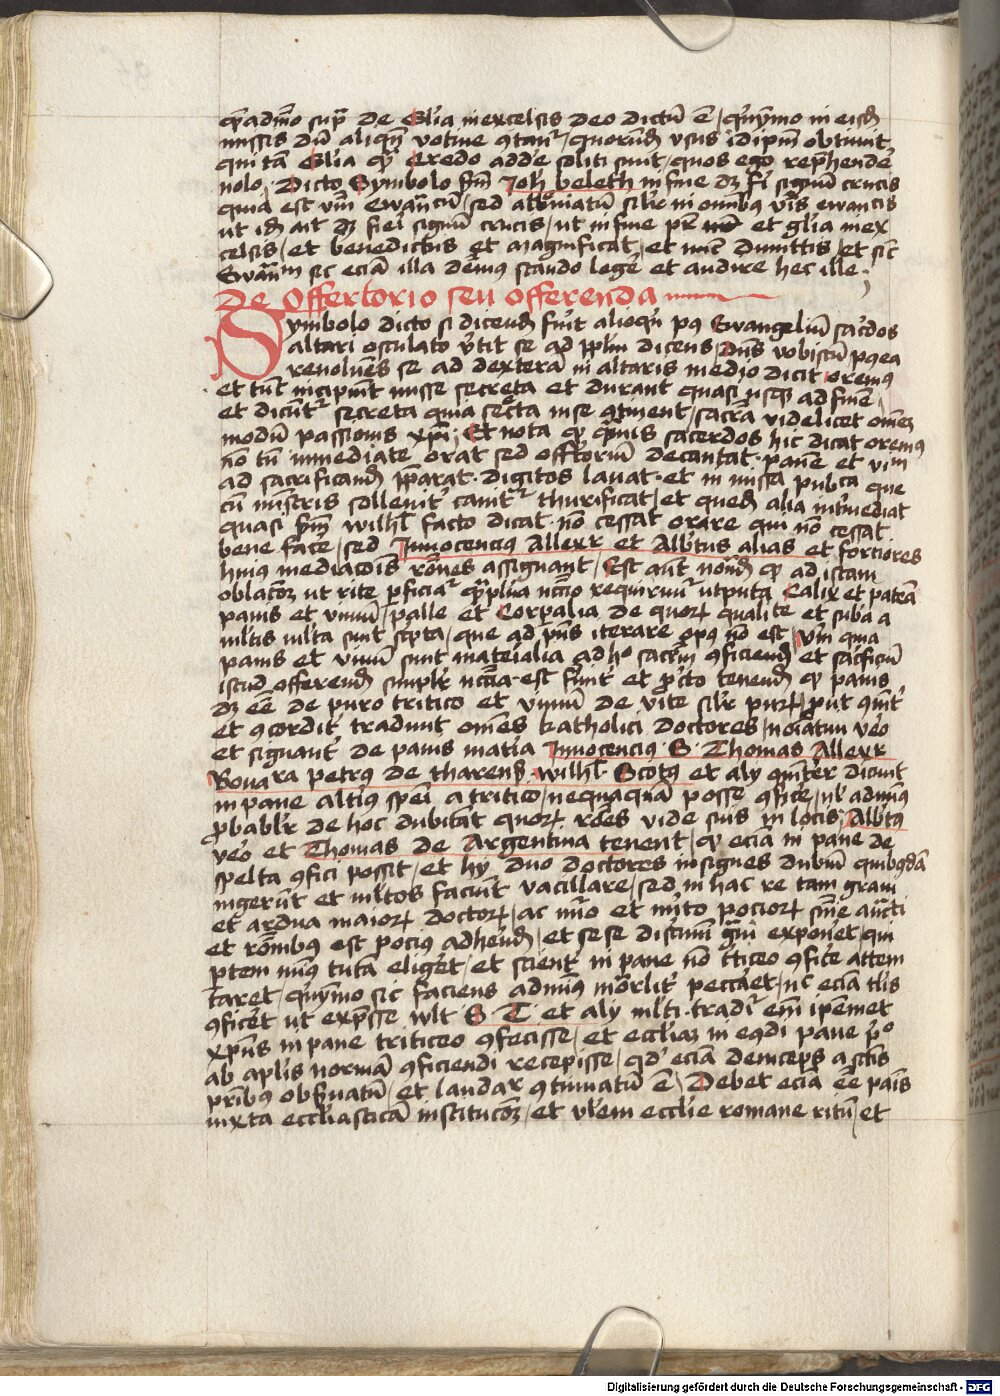 qͥadm̄o supͣ de Glīa in excelsis deo dictū ē / qͥnymo in eisdʒ
missis dū aliqn̄ votiue 9tant᷑ / quorūdʒ vsus id ipm̄ obtinuit
qui tā Glīa qͣ Credo adde soliti sunt / quos ego rephende
nolo / Dicto Symbolo scdm̄ Ioh beleth in fine dʒ fi signū crucis
quia est vm̄ Ewāgᵐ / sed abbreuiatū silr in omībꝫ vīs ewanᵍⁱis
ut idʒ aut dʒ fieri signū crucis / ut in fine pr̄ nr̄ et glīa in ex
celsis / et benedictus et magnificat / et nūc dimittis et sic
Ewāᵐ sic eciā illa dem9 stando legē et audire hec ille
De Offertorio seu offerenda
Symbolo dicto si dicendʒ fuīt alioqn̄ p9 Ewangeliū sacdos
altari osculato vtit se ad ppl̄m dicens / Dn̄s vobiscū p9ea
reuoluēs se ad dexterā in altaris medio dicit oremꝰ
et tūc incipiūt misse secreta et durant quasi usqꝫ ad finē
et dicūt᷑ secreta quia secreta in se 9tinent / sacrā videlicet om̄eꝫ
modū passionis xpi / Et nota qͩ qͣuis sacerdos hic dicat oremꝰ
nō tn̄ inmediate orat sed offtoriū decantat · panē et vinᵐ
ad sacrificandʒ pparat · digitos lauat · et in missa publica que
cū mīstris sollenit᷑ canit᷑ thurificat / et quedʒ alia int᷑mediat
quasi scdm̄ wilhᵐ facto dicat · nō cessat orare qui nō cessat
bene face / sed Innocencius Allexr et Albtus alias et forciores
huius mediacōis rōnes assignant / Est aut notādʒ qͩ ad istam
oblatōeꝫ ut rite pficiat᷑ qͣplīa nccͦo requirunt᷑ utputa Calix et patēā
panis et vinum / palle et Corpalia de quorꝫ qualite et suba a
mltis mlta sunt scpta / que ad pn̄s iterare opus nō est / Vm̄ quia
panis et vinū sunt materialia ad hͦ sacrm̄ 9ficiendʒ et sacficiū
istud offerendʒ simplr nccīa · est sūt et pͥcto tenendʒ qͩ panis
dʒ eē de puro tritico et vinum de vite silr purꝫ / put 9mūit᷑
et 9cordit᷑ tradunt om̄es katholici doctores / noīatim vͦo
et signant᷑ de panis matīa Innocencius · S · Thomas Allexr
Bonauᵃra petrus de tharens · wilhᵐ Scotus et aly qm̄ter dicunt
in pane alti9 spēi a tritico / nequaquā posse 9fice / ul ad min9
pbablr de hoc dubitāt quorꝫ rōes vide suis in locis / Albtꝰ
vͦo et Thomas de Argentina tenent / qͩ eciā in pane de
spelta 9fici possit / et hy duo doctores insignes dubiū quibusdā
ingerūt et mltos faciūt vacillare / sed in hac re tam graui
et ardua maiorꝫ doctorꝫ / ac nūͦo et mͥto pociorꝫ sn̄ie auᶜti
et rōnibus est pocius adherēdʒ / et se se discrimī gͣui exponet / qui
ptem min9 tutā eligēt / et scient᷑ in pane nō tͥticeo 9fice attem
taret / qͥnymo sic faciens admin9 mōrlit᷑ peccaret / nc eciā tlis
9ficēt ut exprsse wlt S T et aly mlti · tradit᷑ em̄ ipemet
xpūs in pane triticeo 9fecisse / et eccliaꝫ in eqͩdi pane pͥͦ
ab aplis normā 9ficiendi recepisse / qd eciā deinceps a sctīs
pribus obsuatū / et laudar 9tinuatū ē / Debet eciā eē panis
iuxta eccliasticā institucōeꝫ / et vlem ecclie romane ritū / et
Digitalisierung gefördert durch die Deutsche Forschungsgemeinschaft - DFG